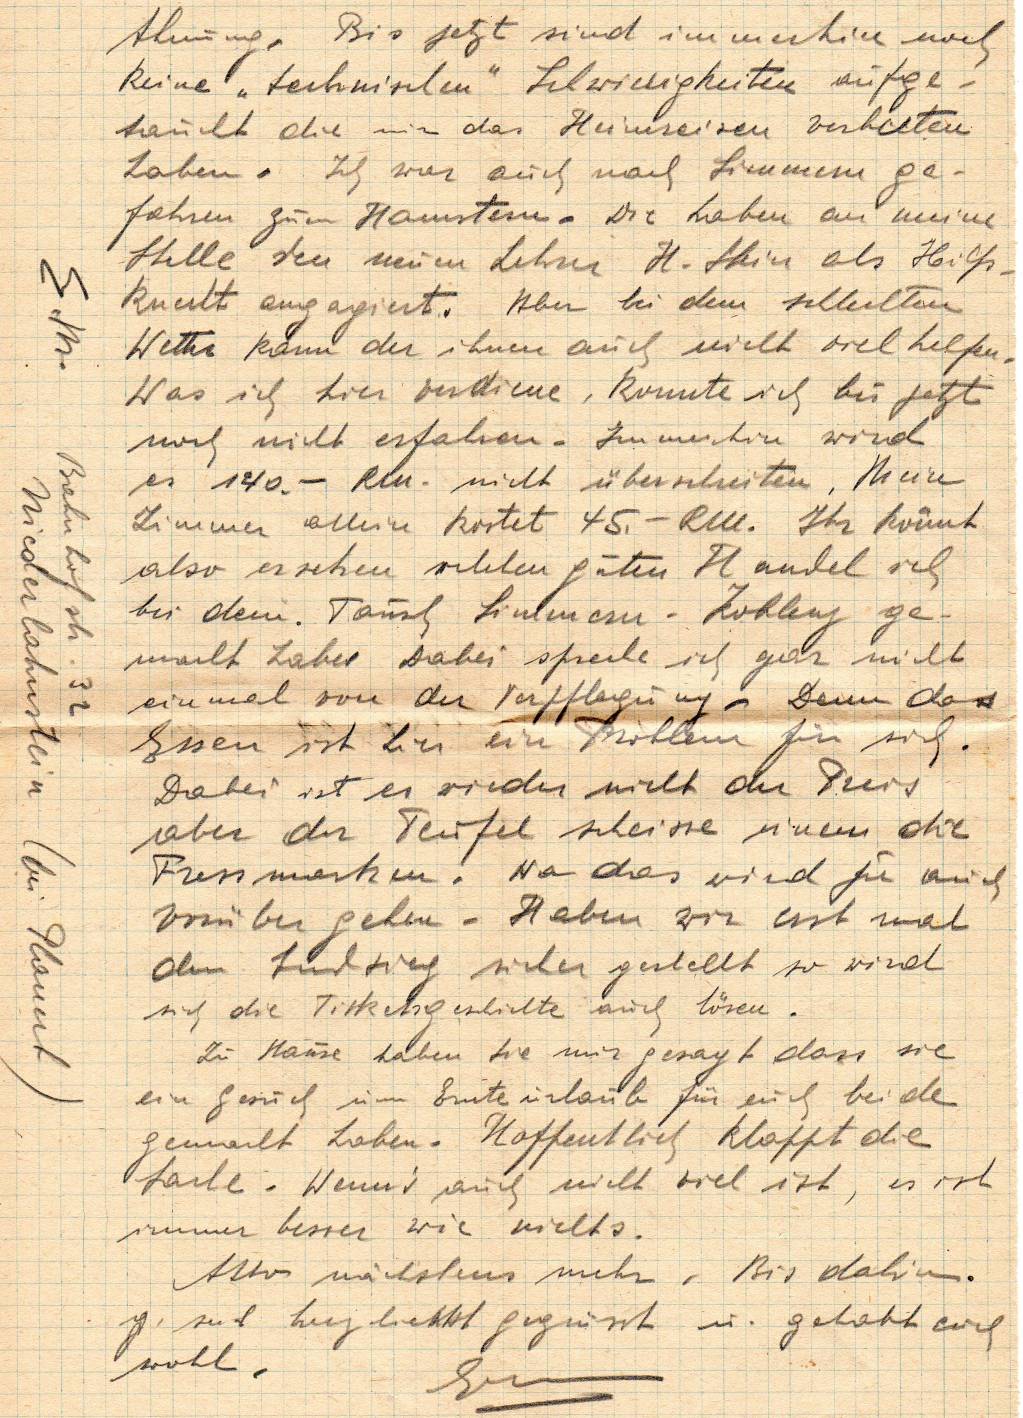 Ahnung. Bis jetzt sind immerhin noch
keine „technischen“ Schwierigkeiten aufge-
taucht die mir das Heimreisen verbieten
haben. Ich war auch nach Simmern ge-
fahren zum Hamstern. Die haben an meine
Stelle den neuen Lehrer H. als Hilfs-
knecht angagiert. Aber bei dem schlechten
Wetter kann der ihnen auch nicht viel helfen.
Was ich hier verdiene, konnte ich bis jetzt
noch nicht erfahren. Immerhin wird
es 140.- RM. nicht überschreiten, Mein
Zimmer allein kostet 45.- RM. Ihr könnt
also ersehen welchen guten Handel ich
bei dem Tausch Simmern - Koblenz ge-
macht habe Dabei spreche ich gar nicht
einmal von der Verpflegung. Denn das
Essen ist hier ein Problem für sich.
Dabei ist es wieder nicht der Preis
aber der Teufel scheisse einem die
Fressmarken. Na das wird ja auch
vorüber gehen. Haben wir erst mal
den Endsieg sicher gestellt so wird
sich die Ticketsgeschichte auch lösen.
Zu Hause haben sie mir gesagt dass sie
ein Gesuch um Ernteurlaub für euch beide
gemacht haben. Hoffentlich klappt die
Sache. Wenn's auch nicht viel ist, es ist
immer besser wie nichts.
Also nächstens mehr. Bis dahin.
seid herzlichst gegrüsst u. gehabt euch
wohl.
Bahnhofstr. 32
Niederlahnstein (bei